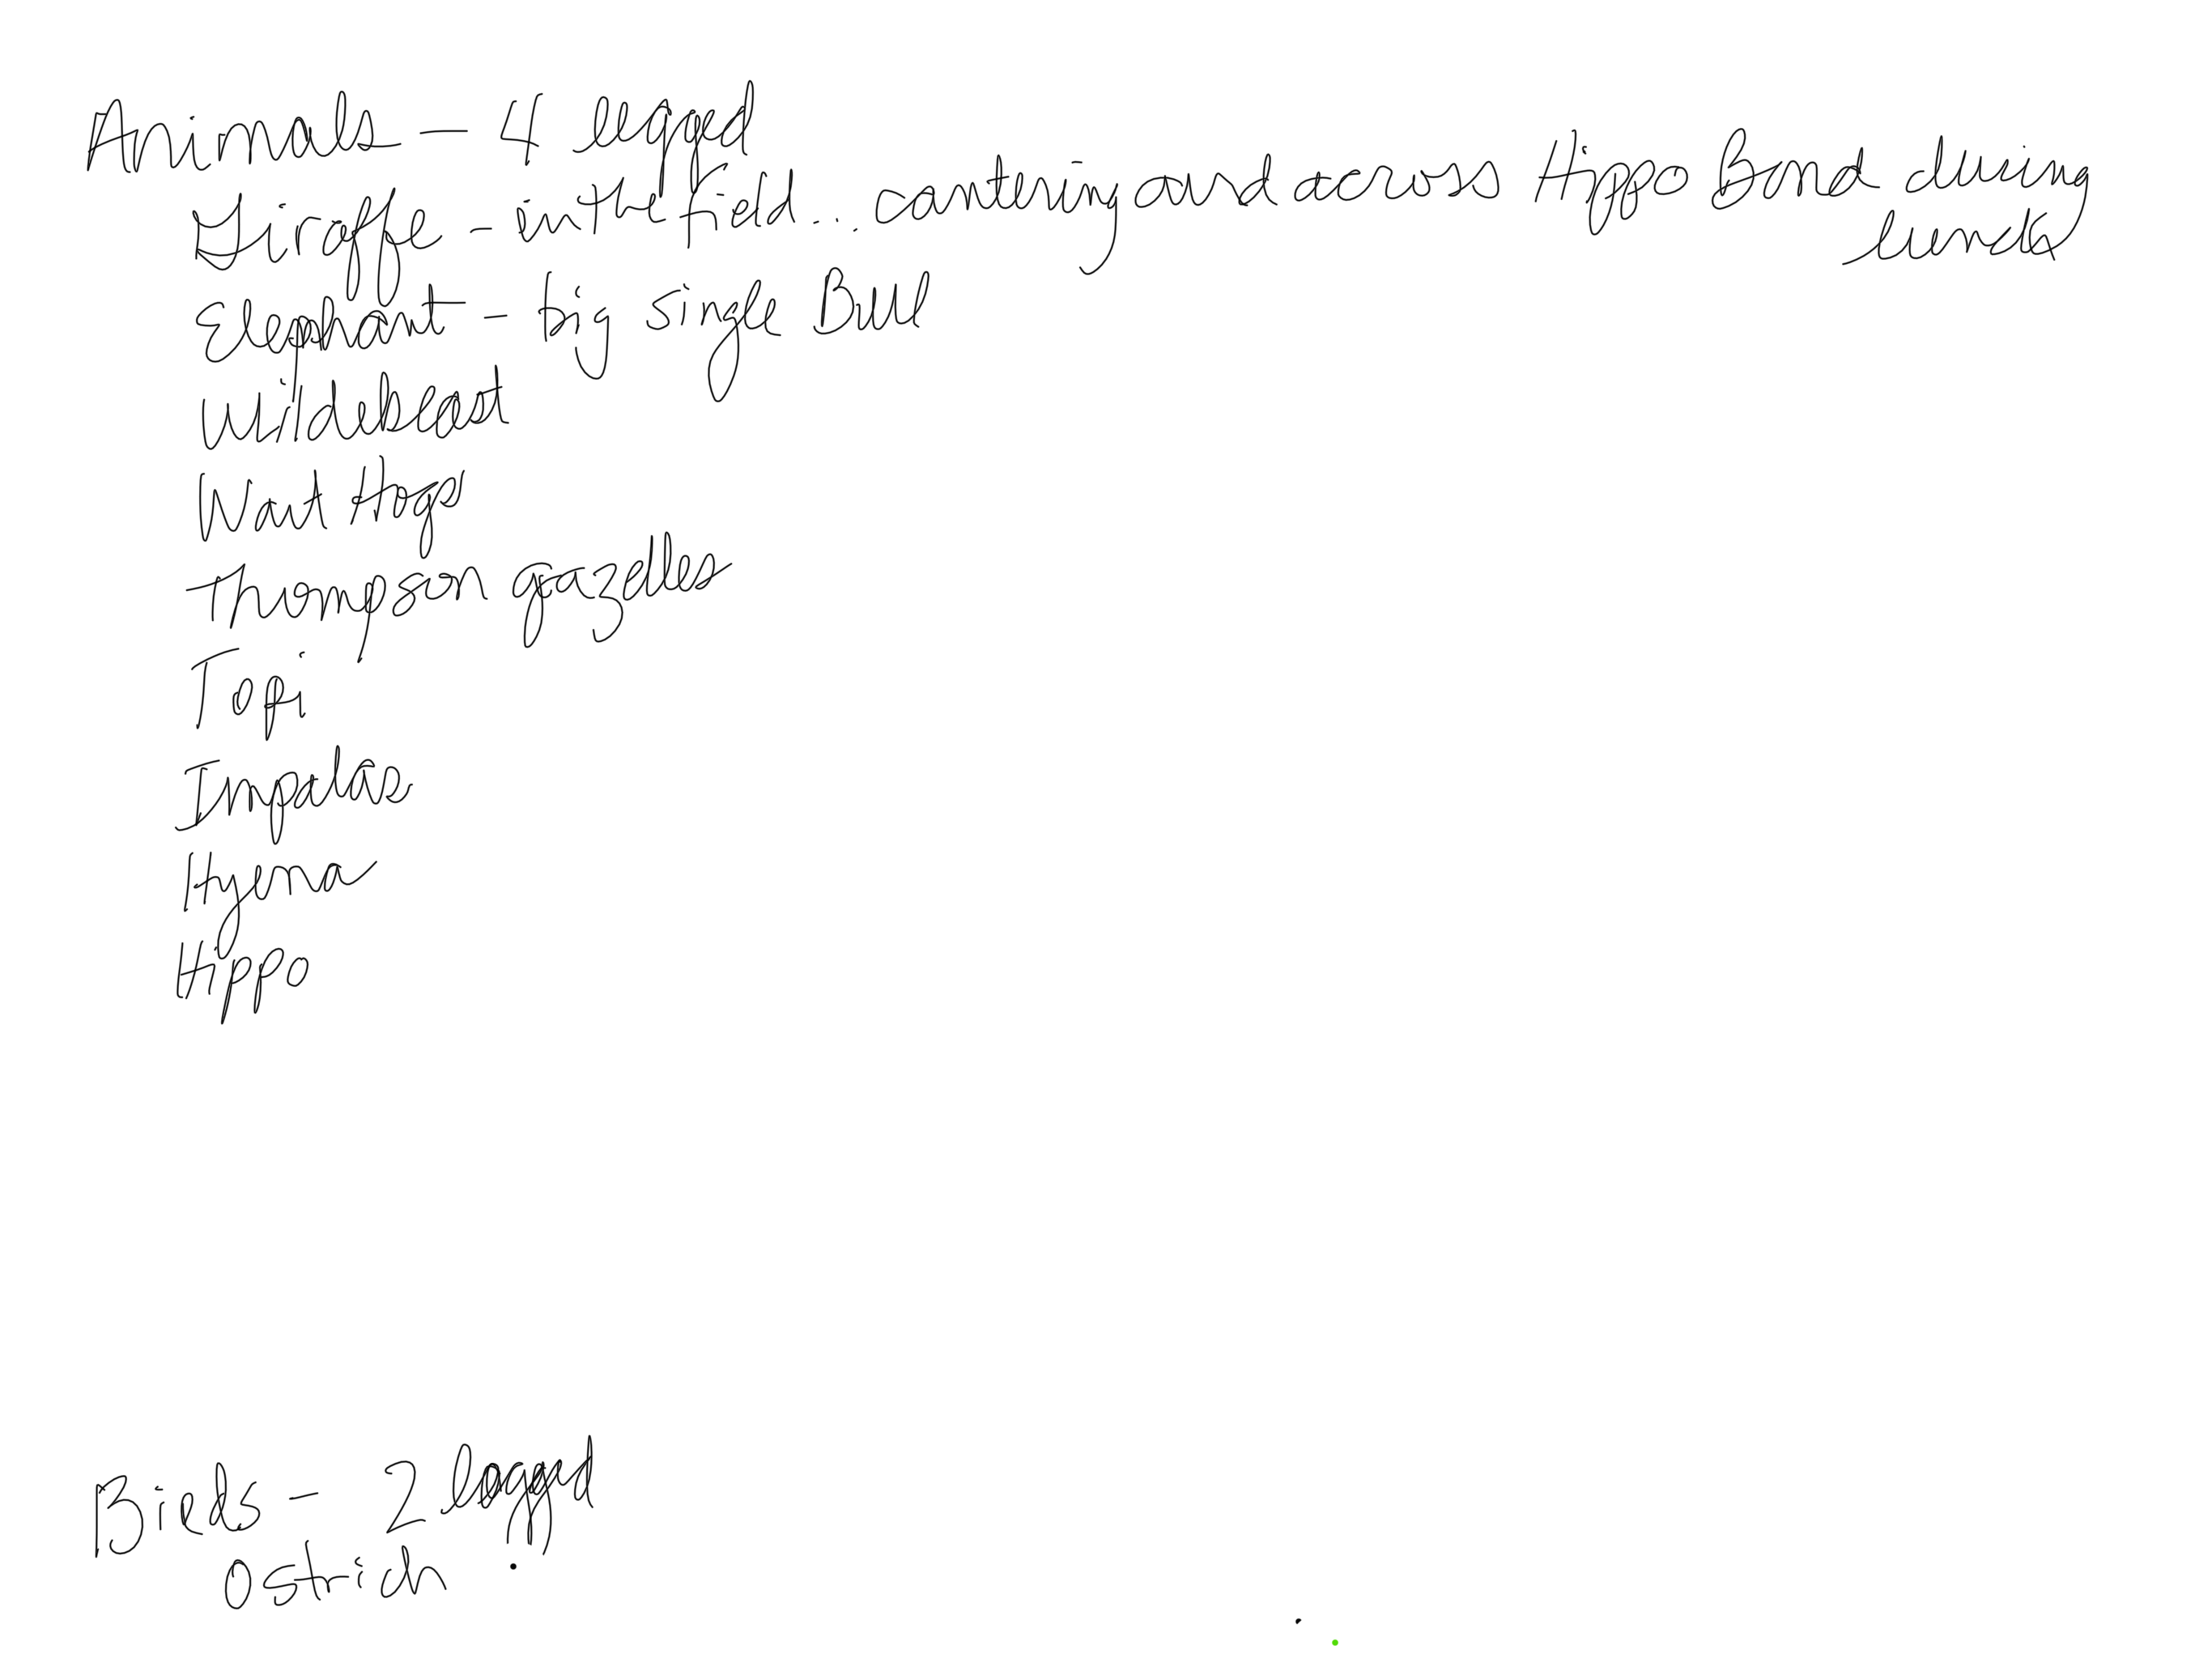 Animals - 4 legged
Giraffe - in the field... cantering and across Hippo Bend during
lunch
Elephant - big single Bull
Wildebeast
Wart Hogs
Thompson gazelles
Topi
Impala
Hyena
Hippo
Birds - 2 legged
Ostrich